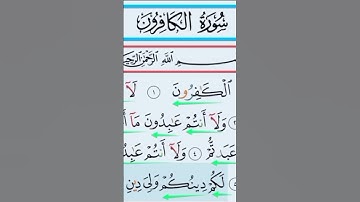 سُورَةُ الكَافِرُون
ـمِ اللَّهِ الرَّحْمَٰنِ الرَّحِيـ
الْكَٰفِرُونَ ١ لَآ
وَلَآ أَنتُمْ عَٰبِدُونَ مَآ أَ
عَبَدتُّمْ ٤ وَلَآ أَنتُمْ عَٰبِدُ
لَكُمْ دِينُكُمْ وَلِيَ دِينِ